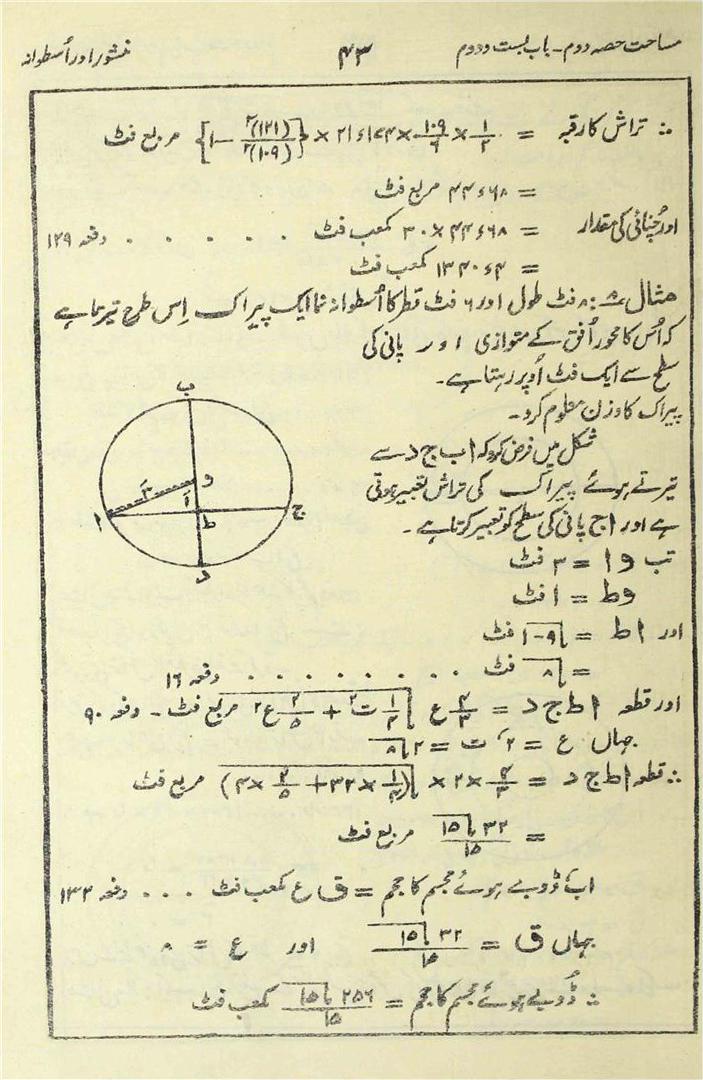 مساحت حصہ دوم۔ باب بست و دوم ۴۳ منشور اور اُسطوانہ
∴ تراش کا رقبہ = ۱/۲ × ۱۰۹/۶ × ۲۱٫۱۷۴ × {(۱۲۱)²/(۱۰۹)² − ۱} مربع فٹ
= ۴۴٫۶۸ مربع فٹ
اور چنائی کی مقدار = ۴۴٫۶۸ × ۳۰ مکعب فٹ . . . . . دفعہ ۱۲۹
= ۱۳۴۰٫۴ مکعب فٹ
مثال ۸: ۸ فٹ طول اور ۶ فٹ قطر کا اُسطوانہ نما ایک پیراک اِس طرح تیرتا ہے
کہ اُس کا محور اُفق کے متوازی اور پانی کی
سطح سے ایک فٹ اُوپر رہتا ہے۔
پیراک کا وزن معلوم کرو۔
شکل میں فرض کرو کہ ا ب ج د سے
تیرتے ہوئے پیراک کی تراش تعبیر ہوتی
ہے اور ا ج پانی کی سطح کو تعبیر کرتا ہے۔
ب
و
۳َ
اَ
ا
ط
ج
د
تب و ا = ۳ فٹ
و ط = ۱ فٹ
اور ا ط = √(۹−۱) فٹ
= √۸ فٹ . . . . . . . . . دفعہ ۱۶
اور قطعہ ا ط ج د = ۴/۳ ع √(۱/۴ ت² + ۲/۵ ع²) مربع فٹ۔ دفعہ ۹۰
جہاں ع = ۲، ت = ۲√۸
∴ قطعہ ا ط ج د = ۴/۳ × ۲ × √(۱/۴ × ۳۲ + ۲/۵ × ۴) مربع فٹ
= ۳۲√۱۵/۱۵ مربع فٹ
اب ڈوبے ہوئے مجسم کا حجم = ق ع مکعب فٹ . . . دفعہ ۱۳۲
جہاں ق = ۳۲√۱۵/۱۵ اور ع = ۸
∴ ڈوبے ہوئے مجسم کا حجم = ۲۵۶√۱۵/۱۵ مکعب فٹ